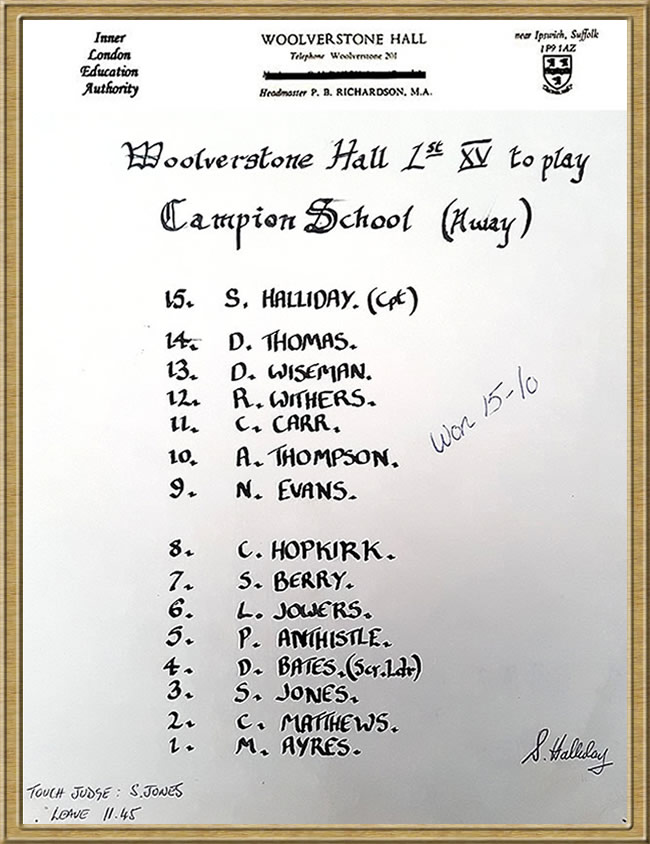 Inner
London
Education
Authority
WOOLVERSTONE HALL
Telephone Woolverstone 201
Headmaster P. B. RICHARDSON, M.A.
near Ipswich, Suffolk
IP9 1AZ
Woolverstone Hall 1st XV to play
Campion School (Away)
15. S. HALLIDAY. (Cpt)
14. D. THOMAS.
13. D. WISEMAN.
12. R. WITHERS.
11. C. CARR.
10. A. THOMPSON.
9. N. EVANS.
Won 15-10
8. C. HOPKIRK.
7. S. BERRY.
6. L. JOWERS.
5. P. ANTHISTLE.
4. D. BATES. (Scr. Ldr)
3. S. JONES.
2. C. MATTHEWS.
1. M. AYRES.
S. Halliday
TOUCH JUDGE : S. JONES
LEAVE 11.45